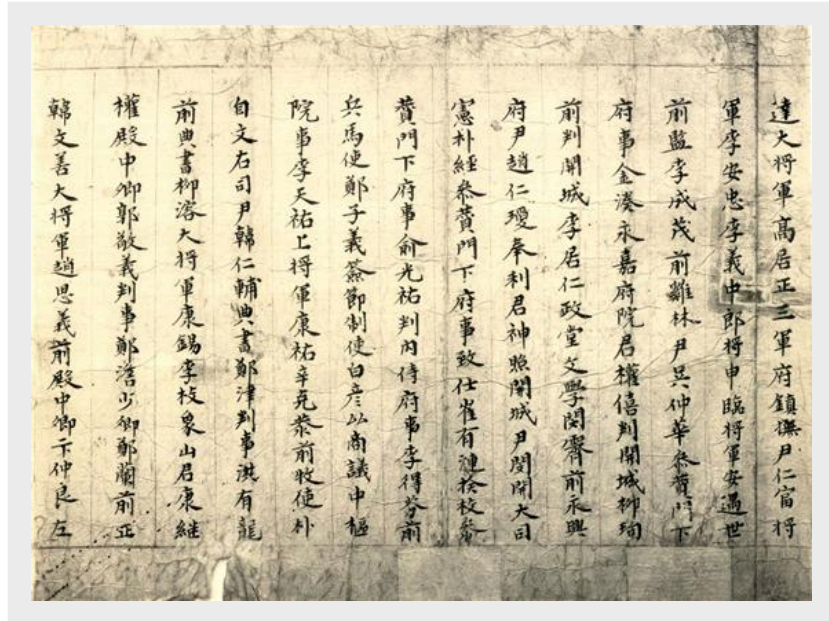 達大將軍高居正三軍府鎮撫尹仁富將
軍李安忠李義中郎將申臨將軍安遇世
前監李成茂前雞林尹吳仲華叅賛門下
府事金湊永嘉府院君權僖判開城柳珣
前判開城李居仁政堂文學閔霽前永興
府尹趙仁瓊奉利君神照開城尹閔開大司
憲朴經叅賛門下府事致仕崔有漣撿校叅
賛門下府事俞光祐判內侍府事李得芬前
兵馬使鄭子義簽節制使白彦 商議中樞
院事李天祐上將軍康祐辛克恭前牧使朴
自文右司尹韓仁輔典書鄭津判事洪有龍
前典書柳濬大將軍康錫李枝象山君康継
權殿中卿郭敬義判事鄭浩少卿鄭蘭前正
韓文善大將軍趙思義前殿中卿卞仲良左